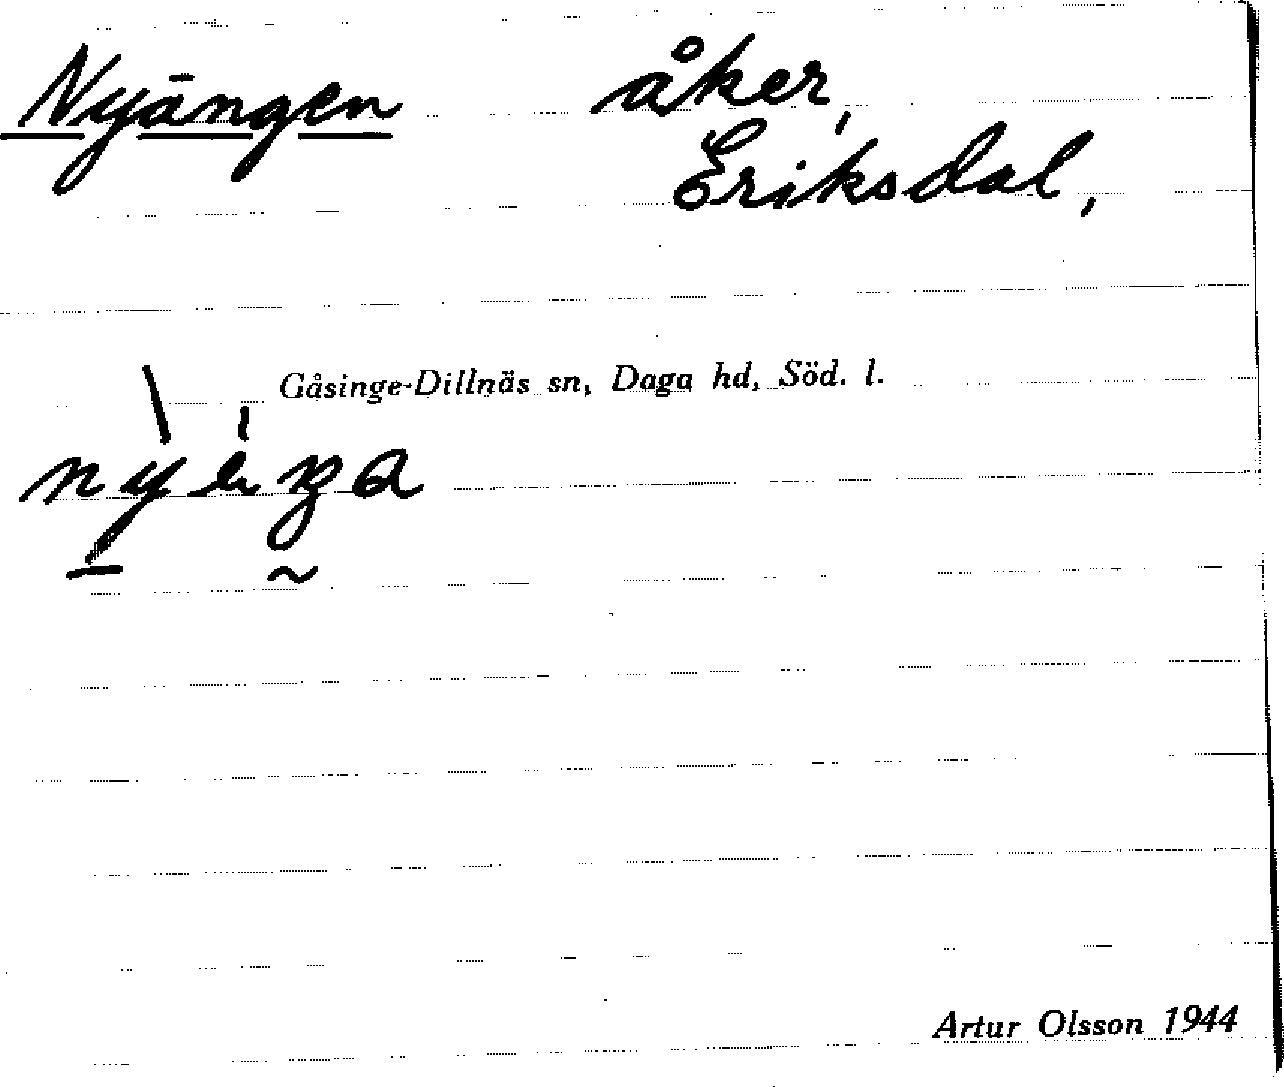 Nyängen åker,
Eriksdal,
Gåsinge-Dillnäs sn, Daga hd, Söd. l.
Artur Olsson 1944